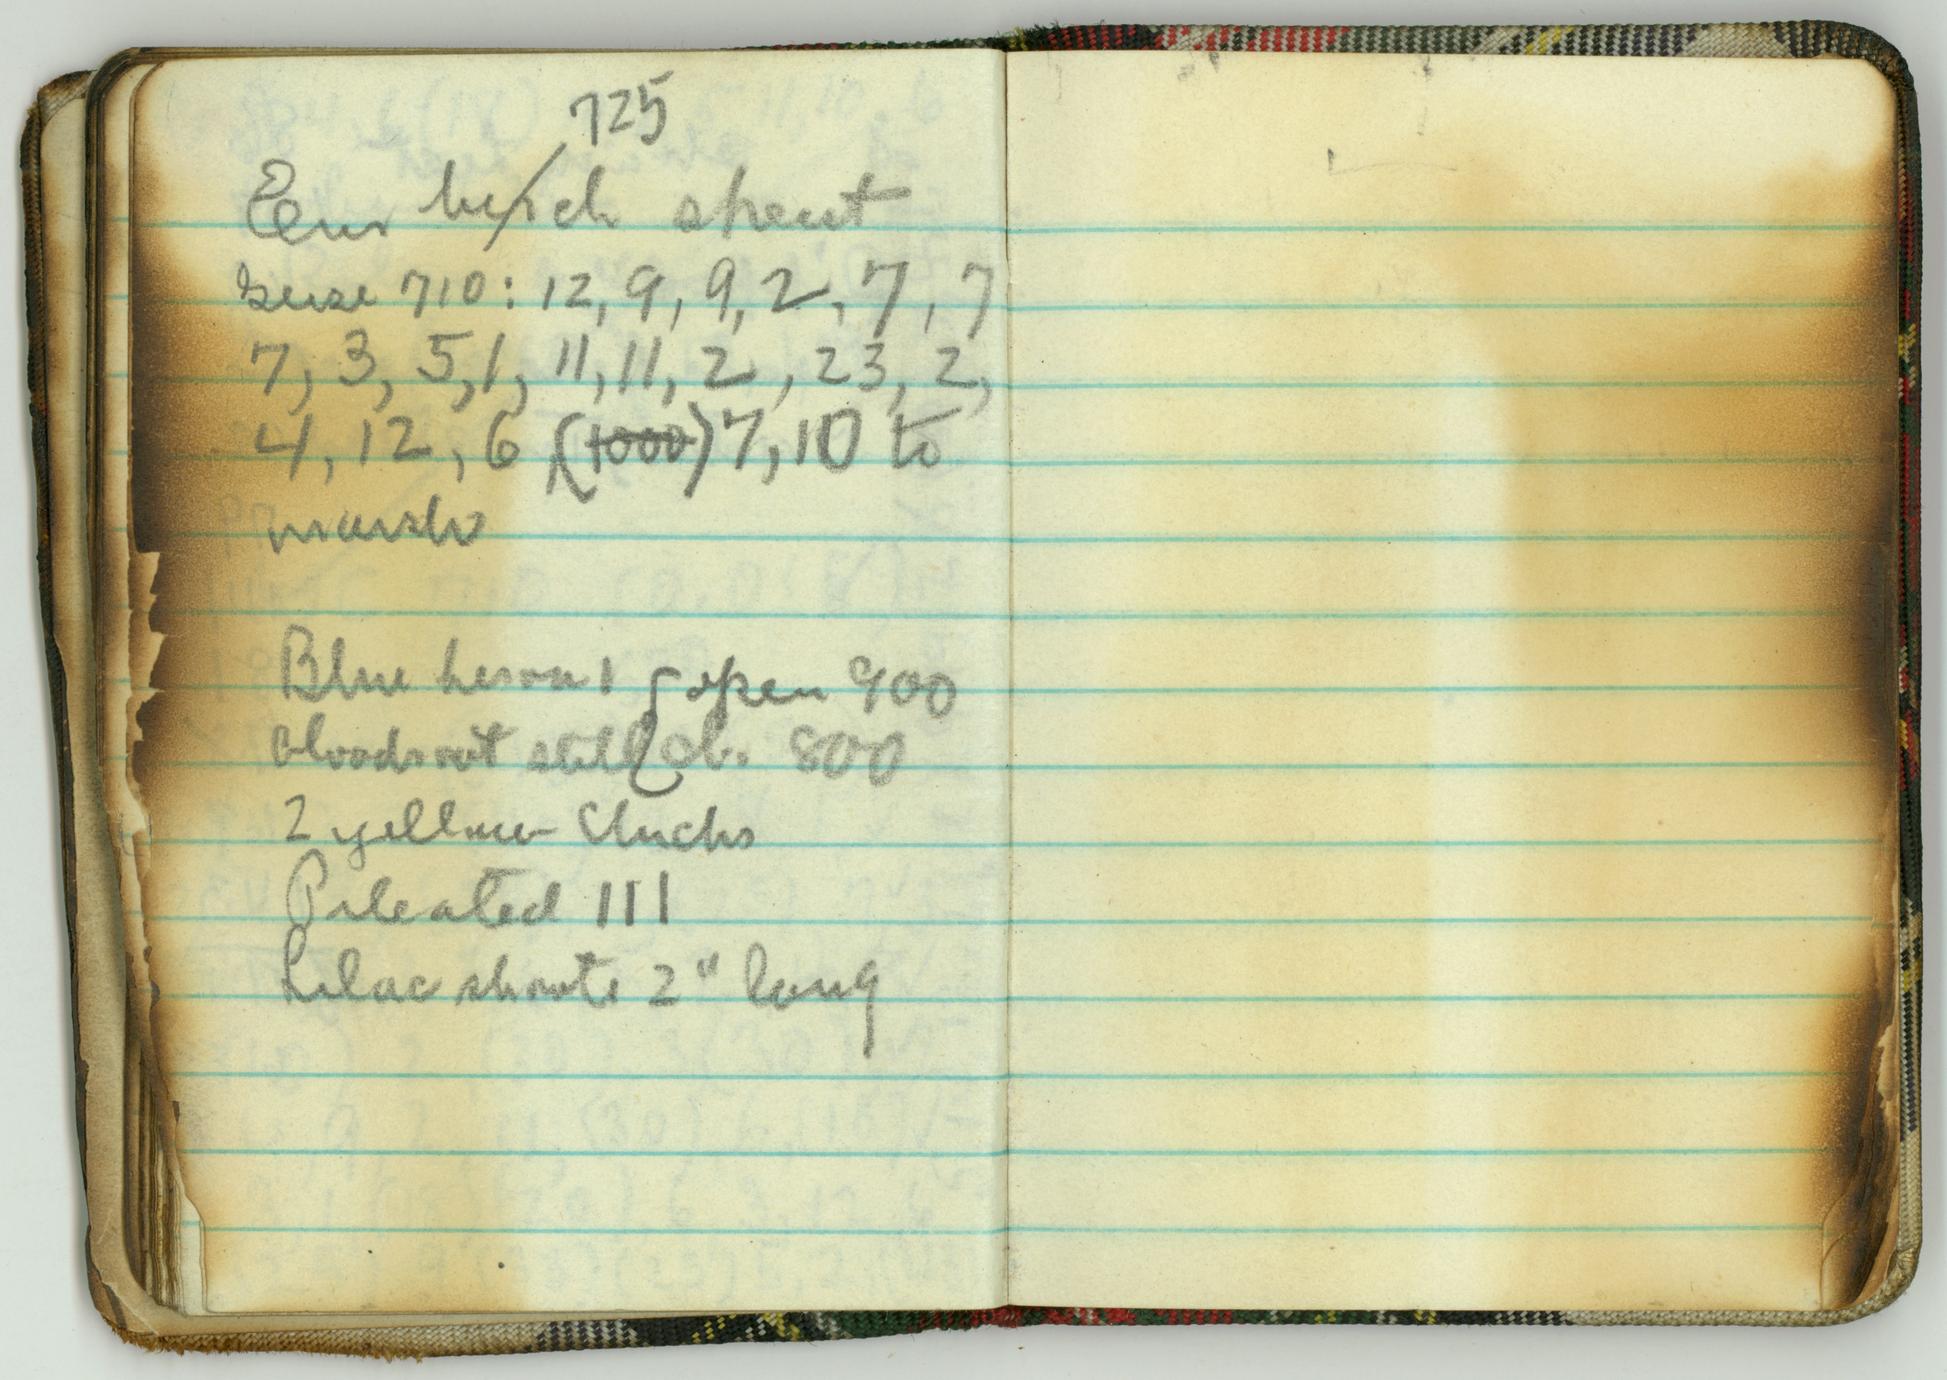 725
Our birch spent
geese 710: 12, 9, 9, 2, 7, 7
7, 3, 5, 1, 11, 11, 2, 23, 2,
4, 12, 6 (1000) 7, 10 to
marsh
Blue heron 1 { open 900
bloodroot still { cl. 800
2 yellow
Pileated 111
Lilac shoots 2" long